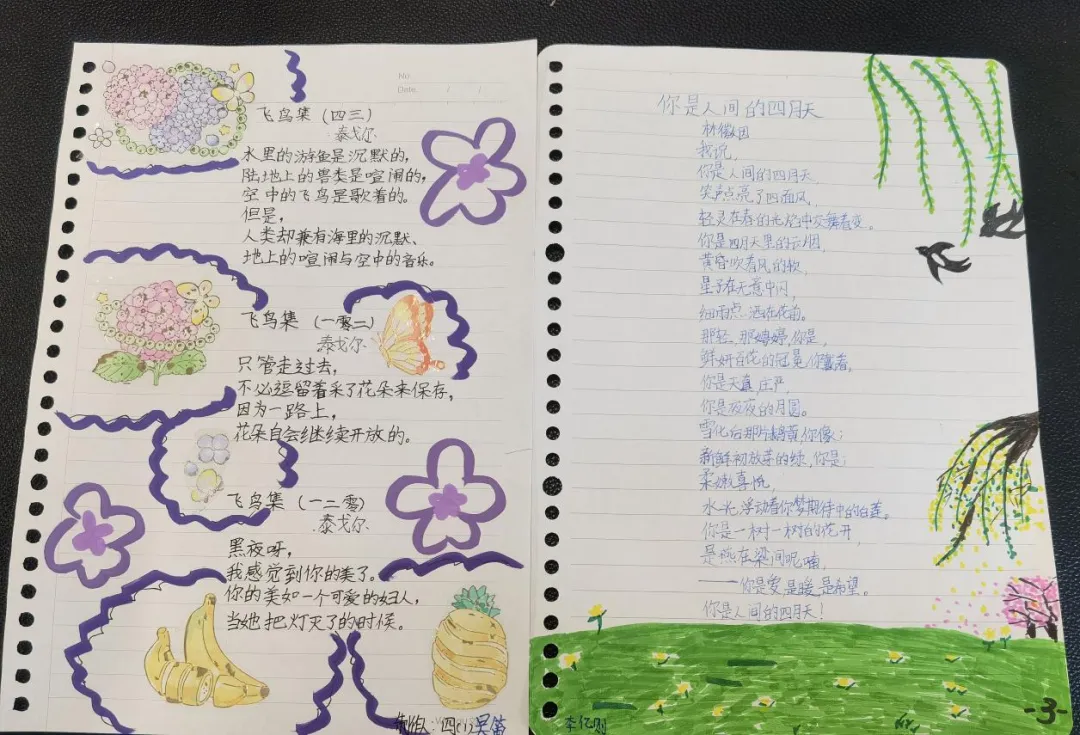 No.
Date.
飞鸟集（四三）
泰戈尔
水里的游鱼是沉默的,
陆地上的兽类是喧闹的,
空中的飞鸟是歌着的。
但是,
人类却兼有海里的沉默、
地上的喧闹与空中的音乐。
飞鸟集（一零二）
泰戈尔
只管走过去,
不必逗留着采了花朵来保存,
因为一路上,
花朵自会继续开放的。
飞鸟集（一二零）
泰戈尔
黑夜呀,
我感觉到你的美了。
你的美如一个可爱的妇人,
当她把灯灭了的时候。
四(1)吴笛
你是人间的四月天
林徽因
我说,
你是人间的四月天,
笑声点亮了四面风,
轻灵在春的光焰中交舞着变。
你是四月天里的云烟,
黄昏吹着风的软,
星子在无意中闪,
细雨点洒在花前。
那轻,那娉婷,你是,
鲜妍百花的冠冕你戴着,
你是天真,庄严,
你是夜夜的月圆。
雪化后那片鹅黄,你像;
新鲜初放芽的绿,你是;
柔嫩喜悦,
水光浮动着你梦期待中的白莲。
你是一树一树的花开,
是燕在梁间呢喃,
——你是爱,是暖,是希望。
你是人间的四月天!
-3-